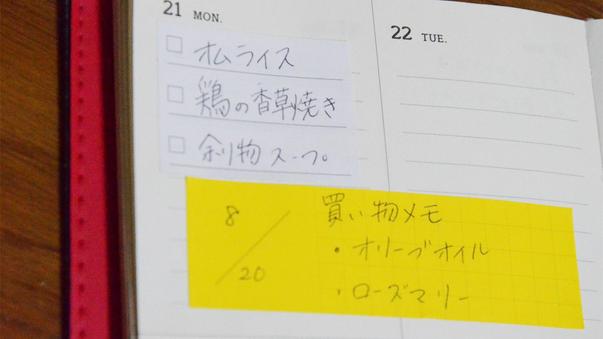 21 MON.
□ オムライス
□ 鶏の香草焼き
□ 余り物スープ
22 TUE.
8/20
買い物メモ
・オリーブオイル
・ローズマリー